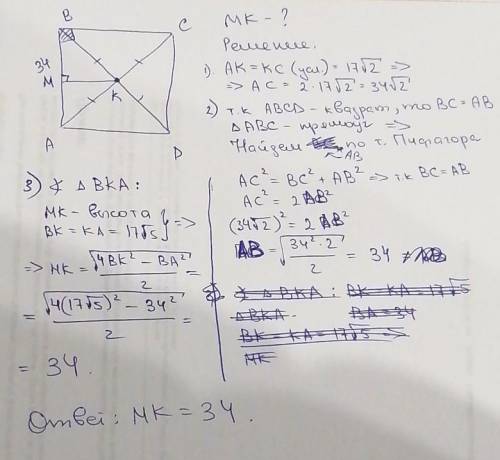 B
C
34
M
K
A
D
MK - ?
Решение.
1) AK = KC (усл) = 17√2 =>
=> AC = 2 · 17√2 = 34√2
2) т.к ABCD - квадрат, то BC = AB
△ABC - прямоуг =>
Найдем по т. Пифагора
AB
AC² = BC² + AB² => т.к BC = AB
AC² = 2AB²
(34√2)² = 2AB²
AB = √(34² · 2 / 2) = 34
△BKA : BK = KA = 17√5
△BKA BA = 34
BK = KA = 17√5 =>
MK
3) ∢ △BKA :
MK - высота } =>
BK = KA = 17√5
=> MK = √(4BK² - BA²) / 2 =
= √(4(17√5)² - 34²) / 2 =
= 34.
Ответ : MK = 34.